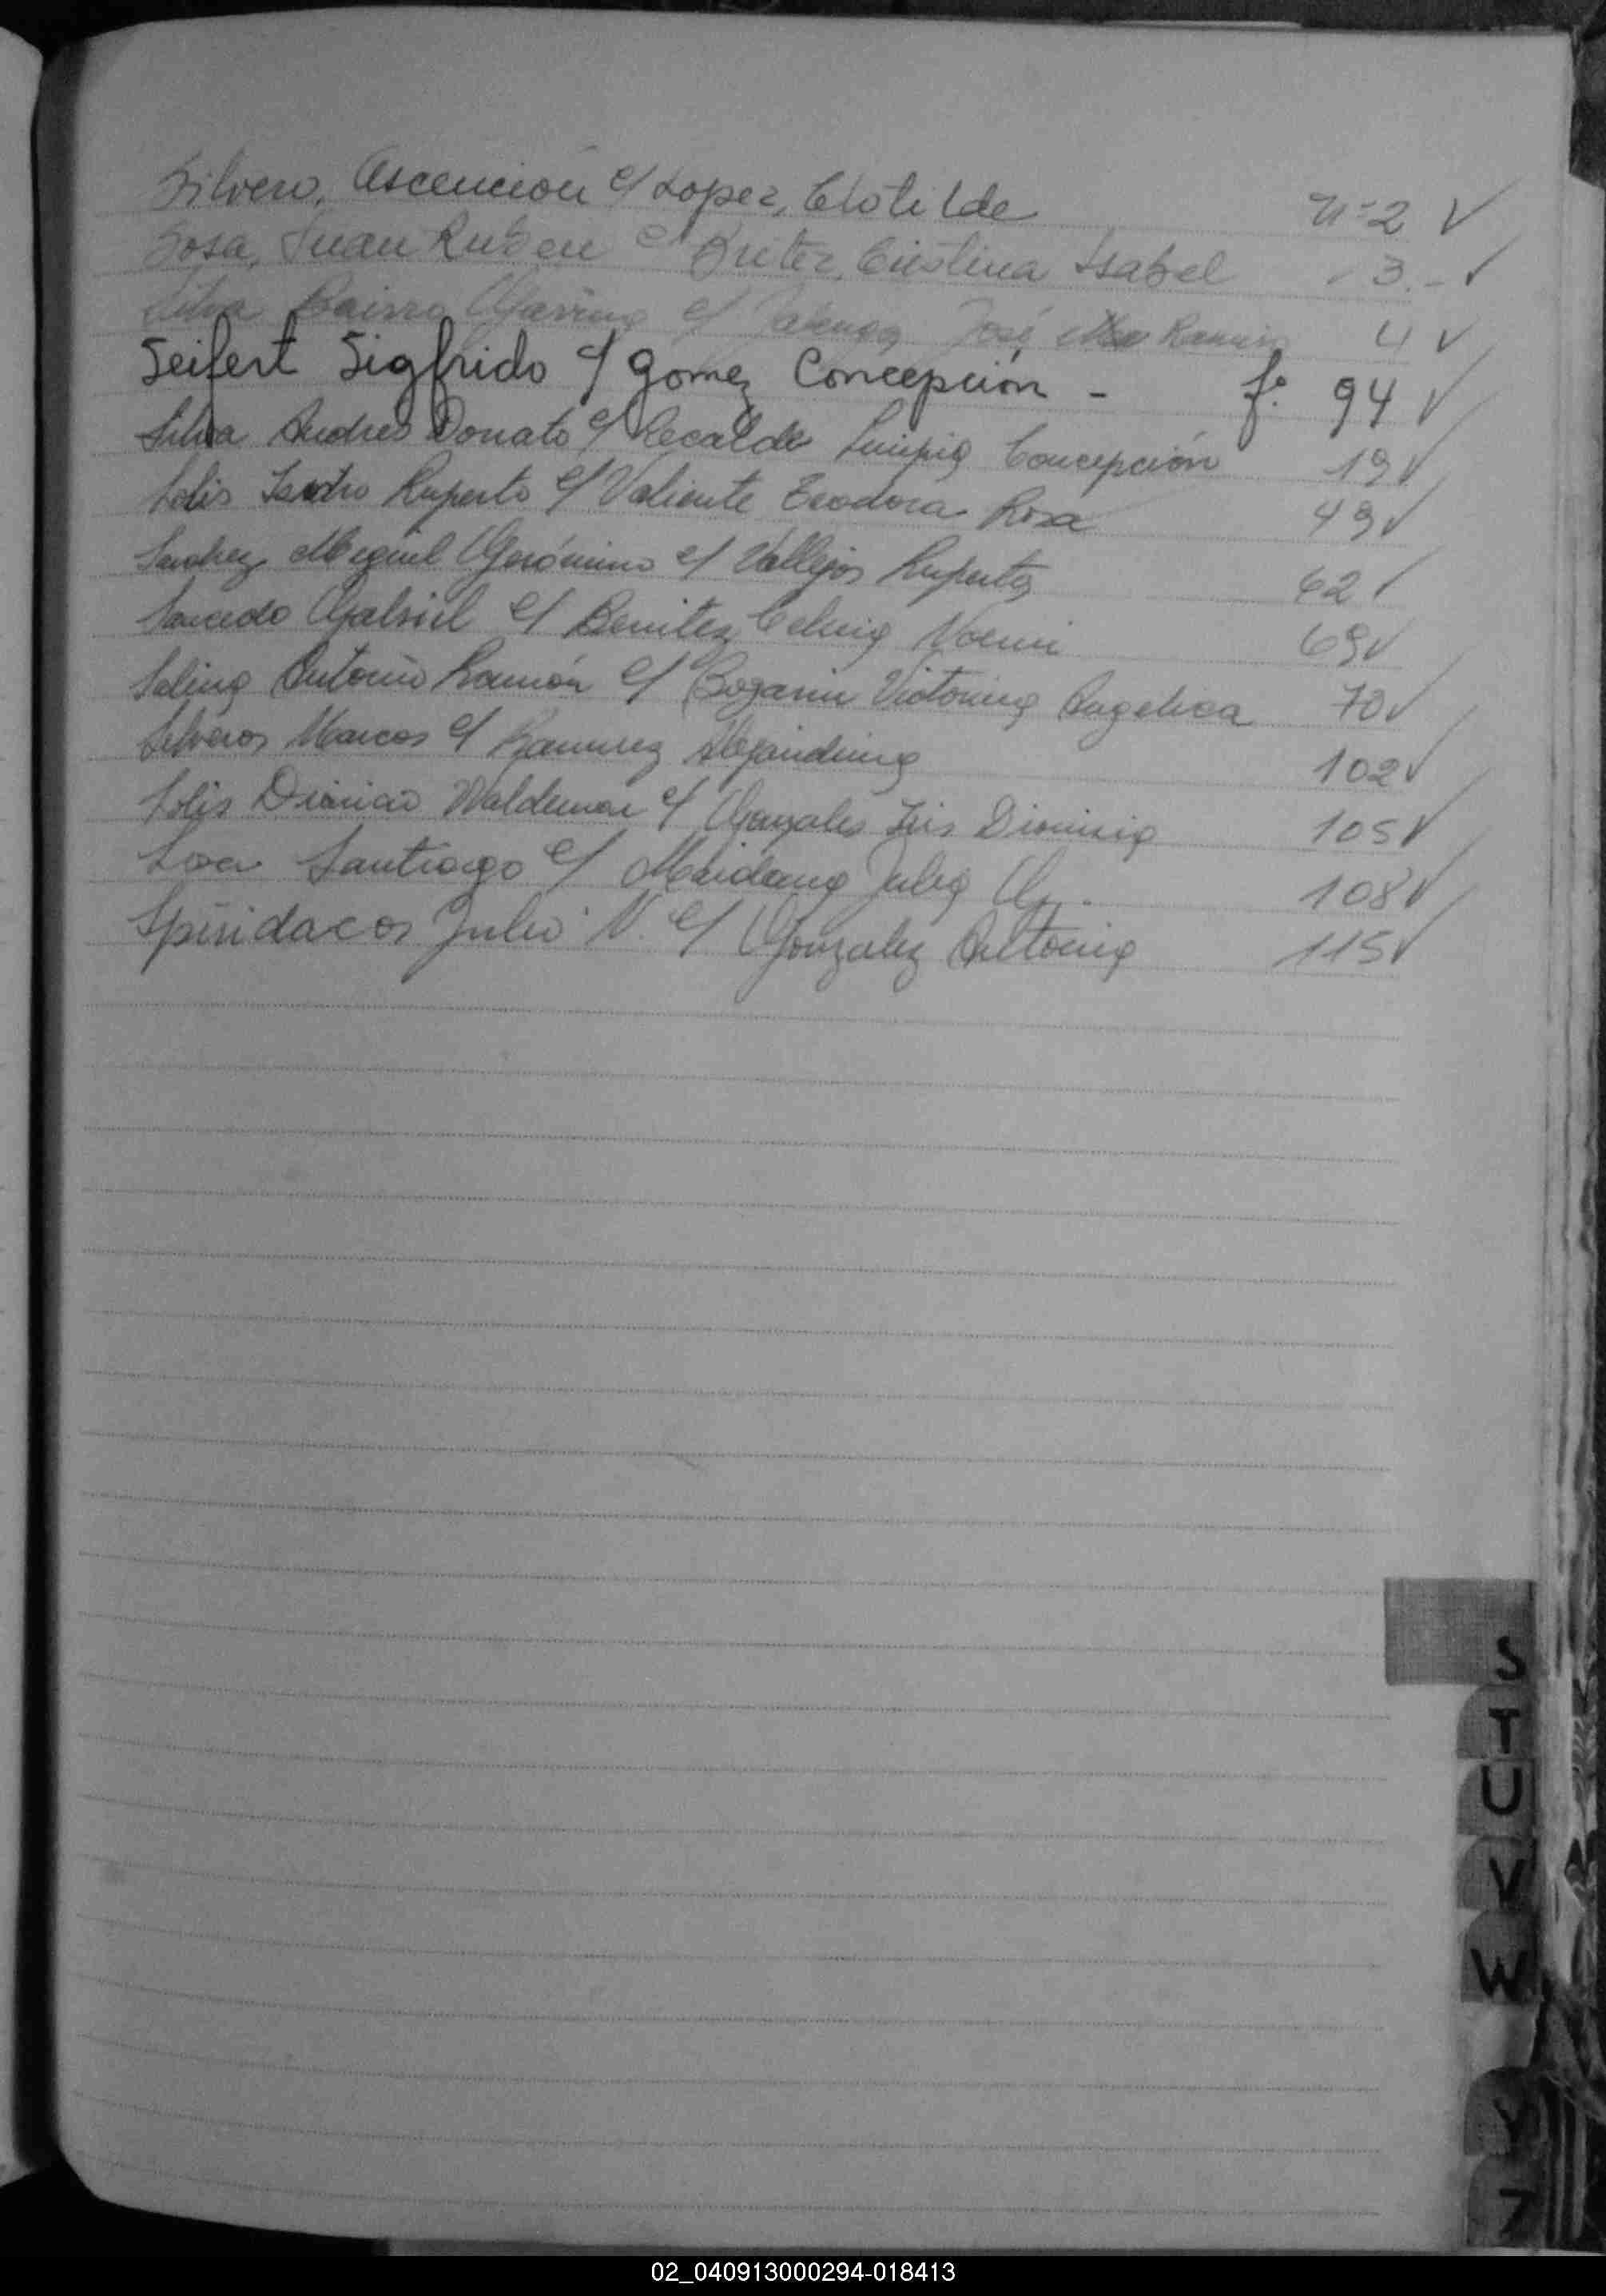 Silvero, Ascención c/ Lopez, Clotilde Nº 2 ✓
Sosa, Juan Ruben c/ Brítez, Cristina Isabel " 3.- ✓
Silva c/ José Ramiro 4 ✓
Seifert Sigfrido c/ Gomez Concepción - fº 94 ✓
Silva Andres Donato c/ Recalde Concepción 19 ✓
Solis Isidro Ruperto c/ Valiente Teodora Rosa 49 ✓
Sanchez Miguel Gerónimo c/ Vallejos Ruperta 62 ✓
Saucedo Gabriel c/ Benitez Celmia Noemi 69 ✓
Salina Antonio Ramón c/ Bogarin Victorina Angelica 70 ✓
Silveros Marcos c/ Ramirez Alejandrina 102 ✓
Solis Dionicio Waldemar c/ Gonzales Iris Dionisia 105 ✓
Santiago c/ Maidana Julia G. 108 ✓
Spiridacos Julio N. c/ Gonzalez Antonia 115 ✓
S
T
U
V
W
Y
Z
02_040913000294-018413